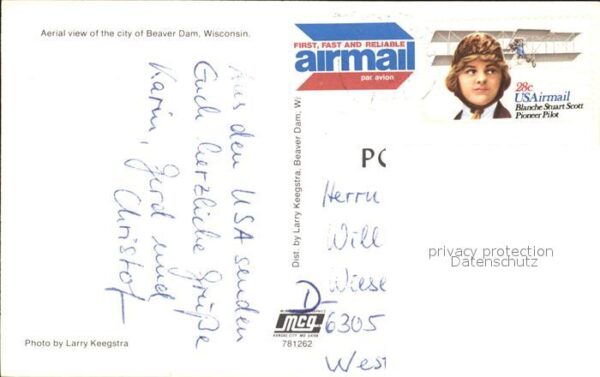 Aerial view of the city of Beaver Dam, Wisconsin.
Aus den USA senden
Euch herzliche Grüße
Karin, Gerd und
Christof
Photo by Larry Keegstra
Dist. by Larry Keegstra, Beaver Dam, Wi
FIRST, FAST AND RELIABLE
airmail
par avion
28c
USAirmail
Blanche Stuart Scott
Pioneer Pilot
PO
Herrn
Will
Wiese
D-
6305
West
mcg
KANSAS CITY, MO. 
781262
privacy protection
Datenschutz